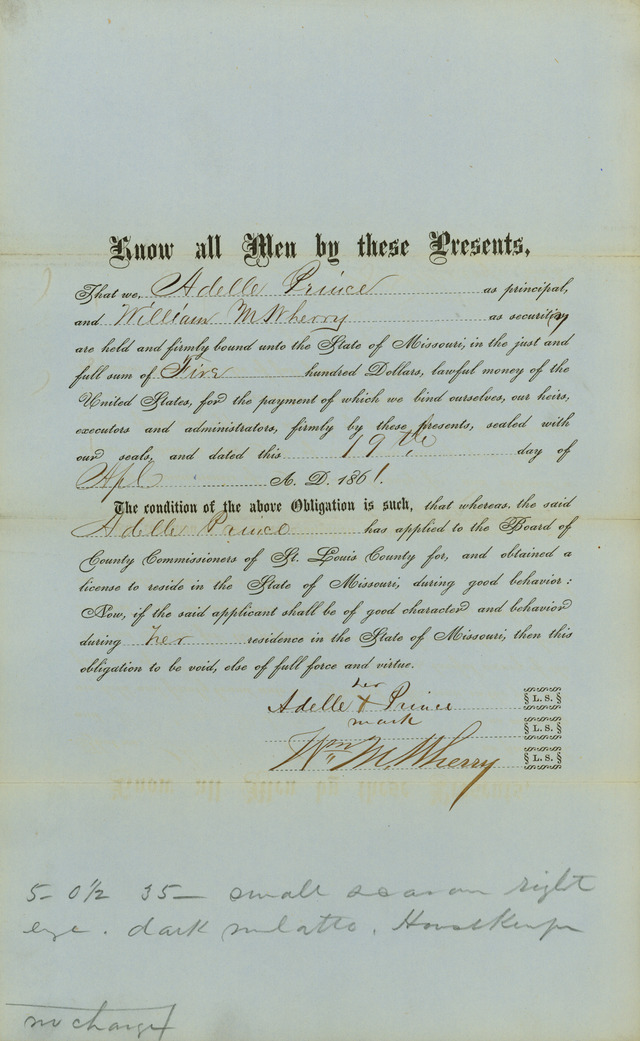 Know all Men by these Presents,
That we, Adelle Prince as principal,
and William M Wherry as security
are held and firmly bound unto the State of Missouri, in the just and
full sum of Five hundred Dollars, lawful money of the
United States, for the payment of which we bind ourselves, our heirs,
executors and administrators, firmly by these presents, sealed with
our seals, and dated this 19th day of
Apl A. D. 1861.
The condition of the above Obligation is such, that whereas, the said
Adelle Prince has applied to the Board of
County Commissioners of St. Louis County for, and obtained a
license to reside in the State of Missouri, during good behavior:
Now, if the said applicant shall be of good character and behavior
during her residence in the State of Missouri, then this
obligation to be void, else of full force and virtue.
her
Adelle X Prince L. S.
mark
L. S.
Wm M Wherry L. S.
5-0½ 35— small scar on right
eye. dark mulatto. Housekeeper
no charge